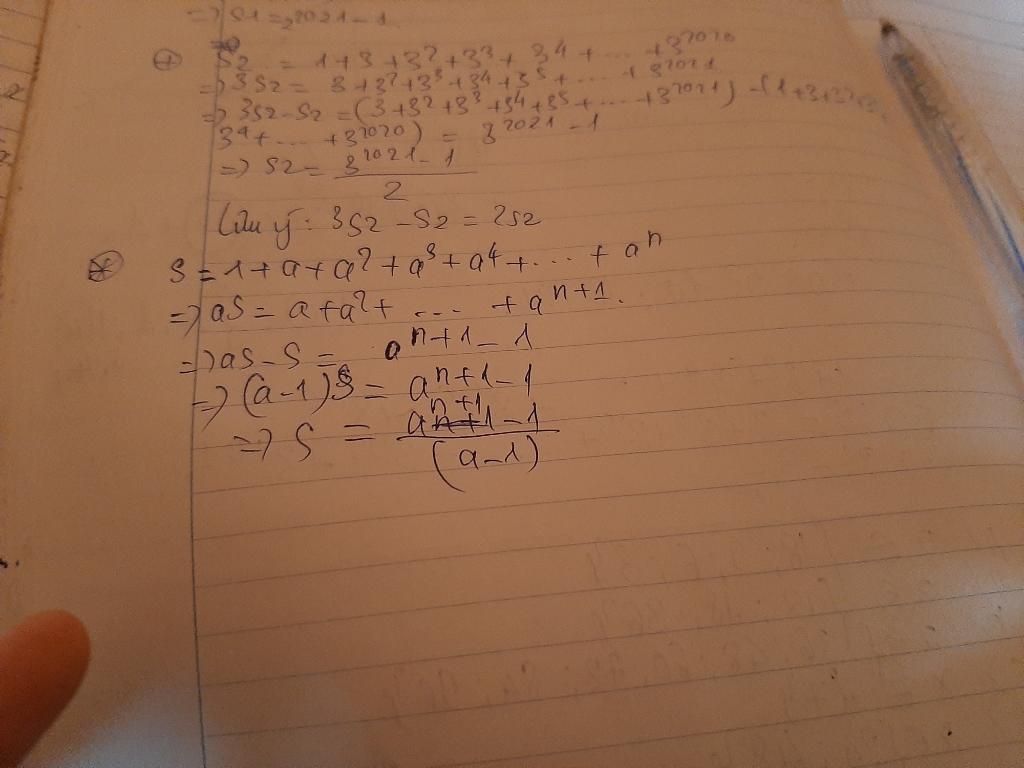 => S1 = 2²⁰²¹ - 1
⊕ S2 = 1+3+3²+3³+3⁴+ ... +3²⁰²⁰
=> 3S2 = 3+3²+3³+3⁴+3⁵+ ... +3²⁰²¹
=> 3S2-S2 = (3+3²+3³+3⁴+3⁵+ ... +3²⁰²¹) - (1+3+3²+3³
3⁴+ ... +3²⁰²⁰) = 3²⁰²¹-1
=> S2 = 3²⁰²¹-1
2
Lưu ý: 3S2 - S2 = 2S2
⊛ S = 1+a+a²+a³+a⁴+ ... + aⁿ
=> aS = a+a²+ ... + aⁿ⁺¹.
=> aS-S = aⁿ⁺¹-1
=> (a-1)S = aⁿ⁺¹-1
=> S = aⁿ⁺¹-1
(a-1)